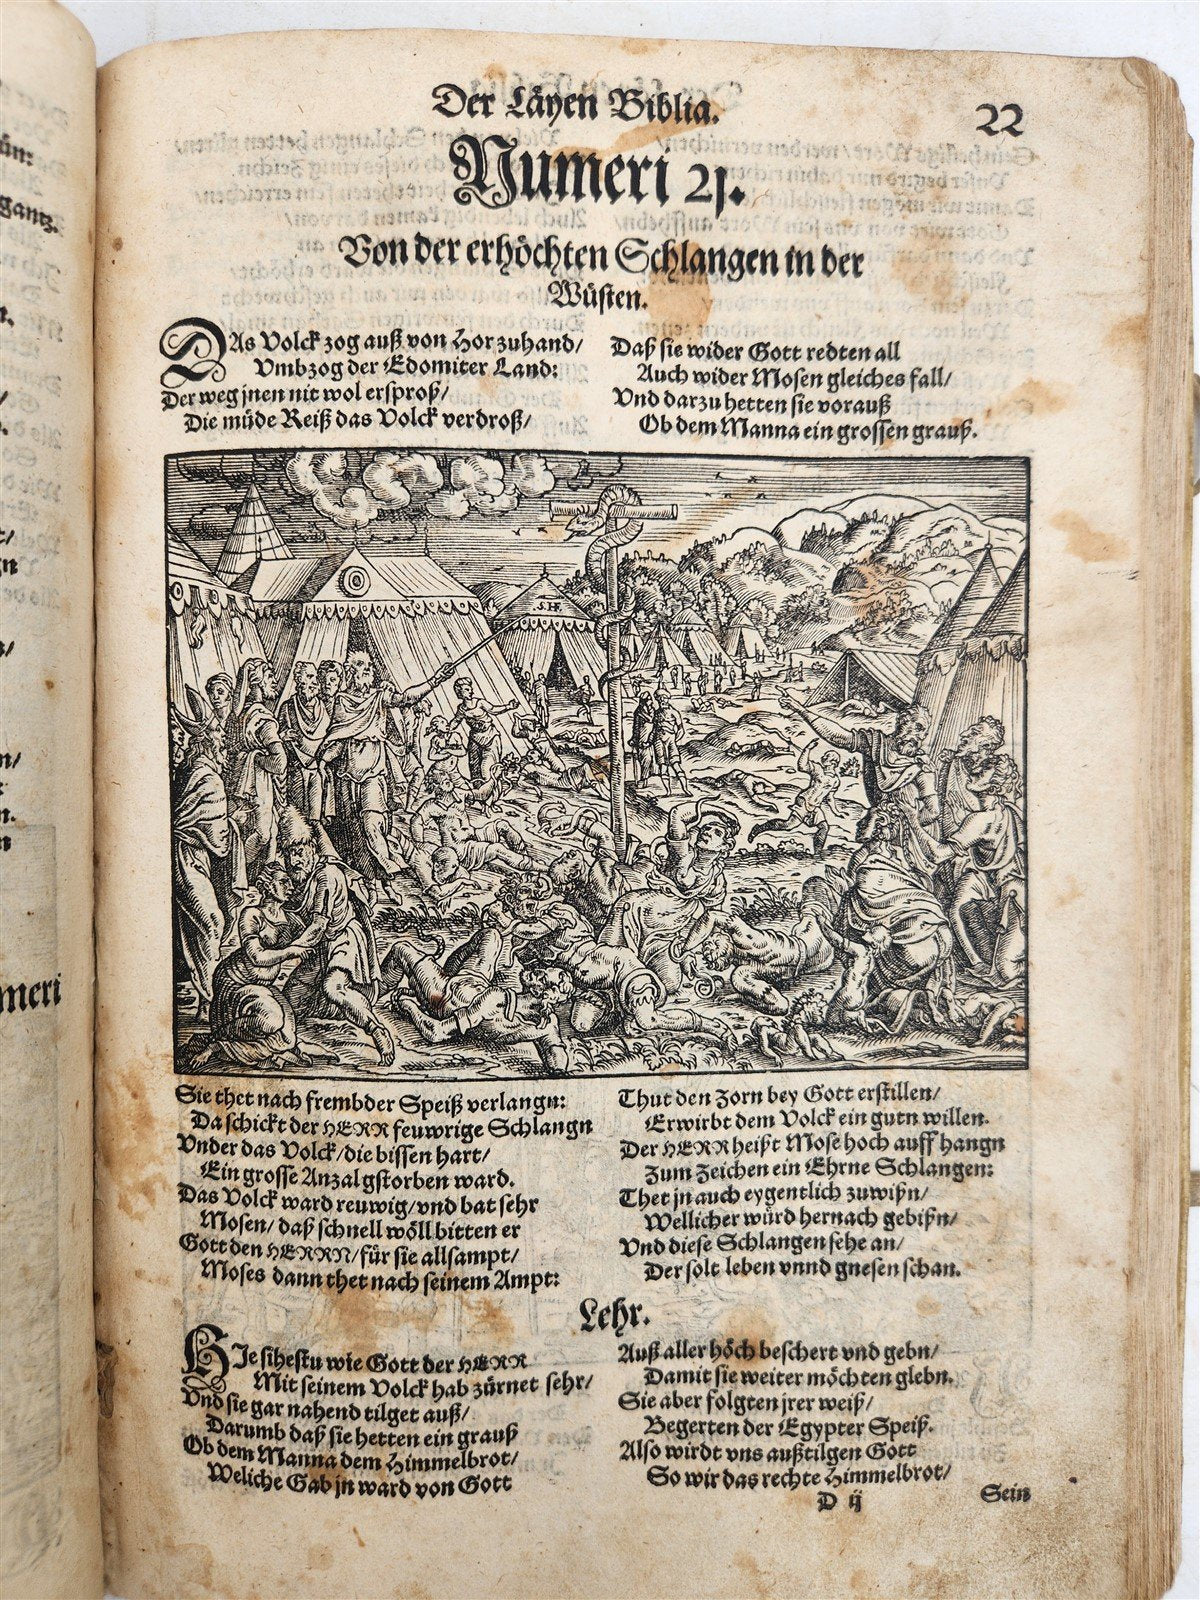 Der Läyen Biblia.
22
Numeri 21.
Von der erhöchten Schlangen in der
Wüsten.
DAs Volck zog auß von Hor zuhand/
Vmbzog der Edomiter Land:
Der weg jnen nit wol ersproß/
Die müde Reiß das Volck verdroß/
Daß sie wider Gott redten all
Auch wider Mosen gleiches fall/
Vnd darzu hetten sie vorauß
Ob dem Manna ein grossen grauß.
S.HF.
Sie thet nach frembder Speiß verlangn:
Da schickt der HERR feuwrige Schlangn
Vnder das Volck/die bissen hart/
Ein grosse Anzal gstorben ward.
Das Volck ward reuwig/vnd bat sehr
Mosen/daß schnell wöll bitten er
Gott den HERRN/für sie allsampt/
Moses dann thet nach seinem Ampt:
Thut den Zorn bey Gott erstillen/
Erwirbt dem Volck ein gutn willen.
Der HERR heißt Mose hoch auff hangn
Zum Zeichen ein Ehrne Schlangen:
Thet jn auch eygentlich zuwißn/
Wellicher würd hernach gebißn/
Vnd diese Schlangen sehe an/
Der solt leben vnnd gnesen schan.
Lehr.
HIe sihestu wie Gott der HERR
Mit seinem Volck hab zürnet sehr/
Vnd sie gar nahend tilget auß/
Darumb daß sie hetten ein grauß
Ob dem Manna dem Himmelbrot/
Weliche Gab jn ward von Gott
Auß aller höch beschert vnd gebn/
Damit sie weiter möchten glebn.
Sie aber folgten jrer weiß/
Begerten der Egypter Speiß.
Also wirdt vns außtilgen Gott
So wir das rechte Himmelbrot/
D ij
Sein
meri
gantz.